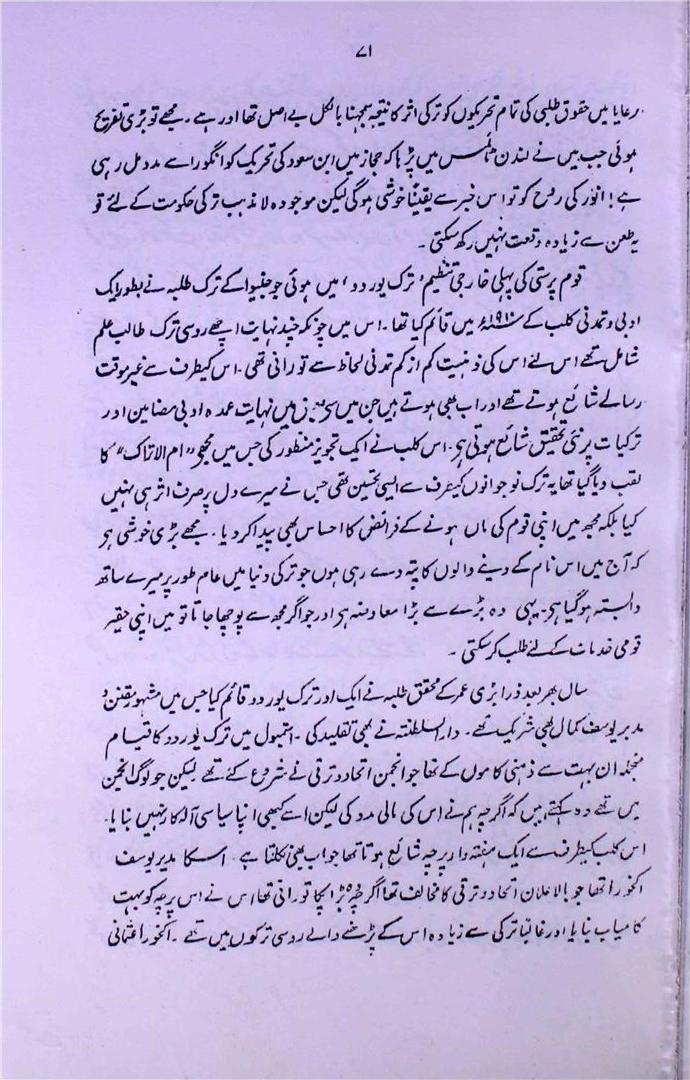 ۷۱
رعایا میں حقوق طلبی کی تمام تحریکوں کو ترکی اثر کا نتیجہ سمجھنا بالکل بے اصل تھا اور ہے ۔ مجھے تو بڑی تفریح
ہوئی جب میں نے لندن ٹائمس میں پڑھا کہ حجاز میں ابن سعود کی تحریک کو انگورا سے مدد مل رہی
ہے! انور کی روح کو تو اس خبر سے یقیناً خوشی ہوگی لیکن موجودہ لا مذہب ترکی حکومت کے لئے تو
یہ طعن سے زیادہ وقعت نہیں رکھ سکتی ۔
قوم پرستی کی پہلی خارجی تنظیم، ترک یوردو، میں ہوئی جو جنیوا کے ترک طلبہ نے بطور ایک
ادبی و تمدنی کلب کے ۱۹۱۰ء میں قائم کیا تھا ۔ اس میں چونکہ چند نہایت اچھے روسی ترک طالب علم
شامل تھے اس لئے اس کی ذہنیت کم از کم تمدنی لحاظ سے تورانی تھی ۔ اس کیطرف سے غیر موقت
رسالے شائع ہوتے تھے اور اب بھی ہوتے ہیں جن میں نہایت عمدہ ادبی مضامین اور
ترکیات پر نئی تحقیق شائع ہوتی ہے۔ اس کلب نے ایک تجویز منظور کی جس میں مجھے "ام الاتراک" کا
لقب دیا گیا تھا یہ ترک نوجوانوں کیطرف سے ایسی تحسین تھی جس نے میرے دل پر صرف اثر ہی نہیں
کیا بلکہ مجھ میں اپنی قوم کی ماں ہونے کے فرائض کا احساس بھی پیدا کر دیا ۔ مجھے بڑی خوشی ہے
کہ آج میں اس نام کے دینے والوں کا پتہ دے رہی ہوں جو ترکی دنیا میں عام طور پر میرے ساتھ
وابستہ ہو گیا ہے۔ یہی وہ بڑے سے بڑا معاوضہ ہے اور جو اگر مجھ سے پوچھا جاتا تو میں اپنی حقیر
قومی خدمات کے لئے طلب کر سکتی ۔
سال بھر بعد ذرا بڑی عمر کے محقق طلبہ نے ایک اور ترک یوردو قائم کیا جس میں مشہور مقنن و
مدبر یوسف کمال بھی شریک تھے ۔ دار السلطنتہ نے بھی تقلید کی ۔ استمبول میں ترک یوردو کا قیام
منجملہ ان بہت سے ذہنی کاموں کے تھا جو انجمن اتحاد و ترقی نے شروع کئے تھے لیکن جو لوگ انجمن
میں تھے وہ کہتے ہیں کہ اگرچہ ہم نے اس کی مالی مدد کی لیکن اسے کبھی اپنا سیاسی آلہ کار نہیں بنایا۔
اس کلب کیطرف سے ایک ہفتہ وار پرچہ شائع ہوتا تھا جو اب بھی نکلتا ہے ۔ اسکا مدیر یوسف
اکخورا تھا جو بالاعلان اتحاد و ترقی کا مخالف تھا اگرچہ وہ بڑا پکا تورانی تھا اس نے اس پرچہ کو بہت
کامیاب بنایا اور غالباً ترکی سے زیادہ اس کے پڑھنے والے روسی ترکوں میں تھے ۔ اکخورا عثمانی